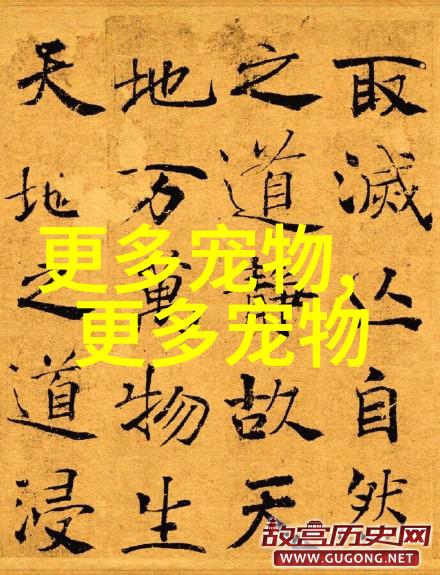 取滅亾自然
之道靜故天
地万萬物生
天地之道浸
更多宠物，
更多宠物
故宫历史网
WWW.GUGONG.NET